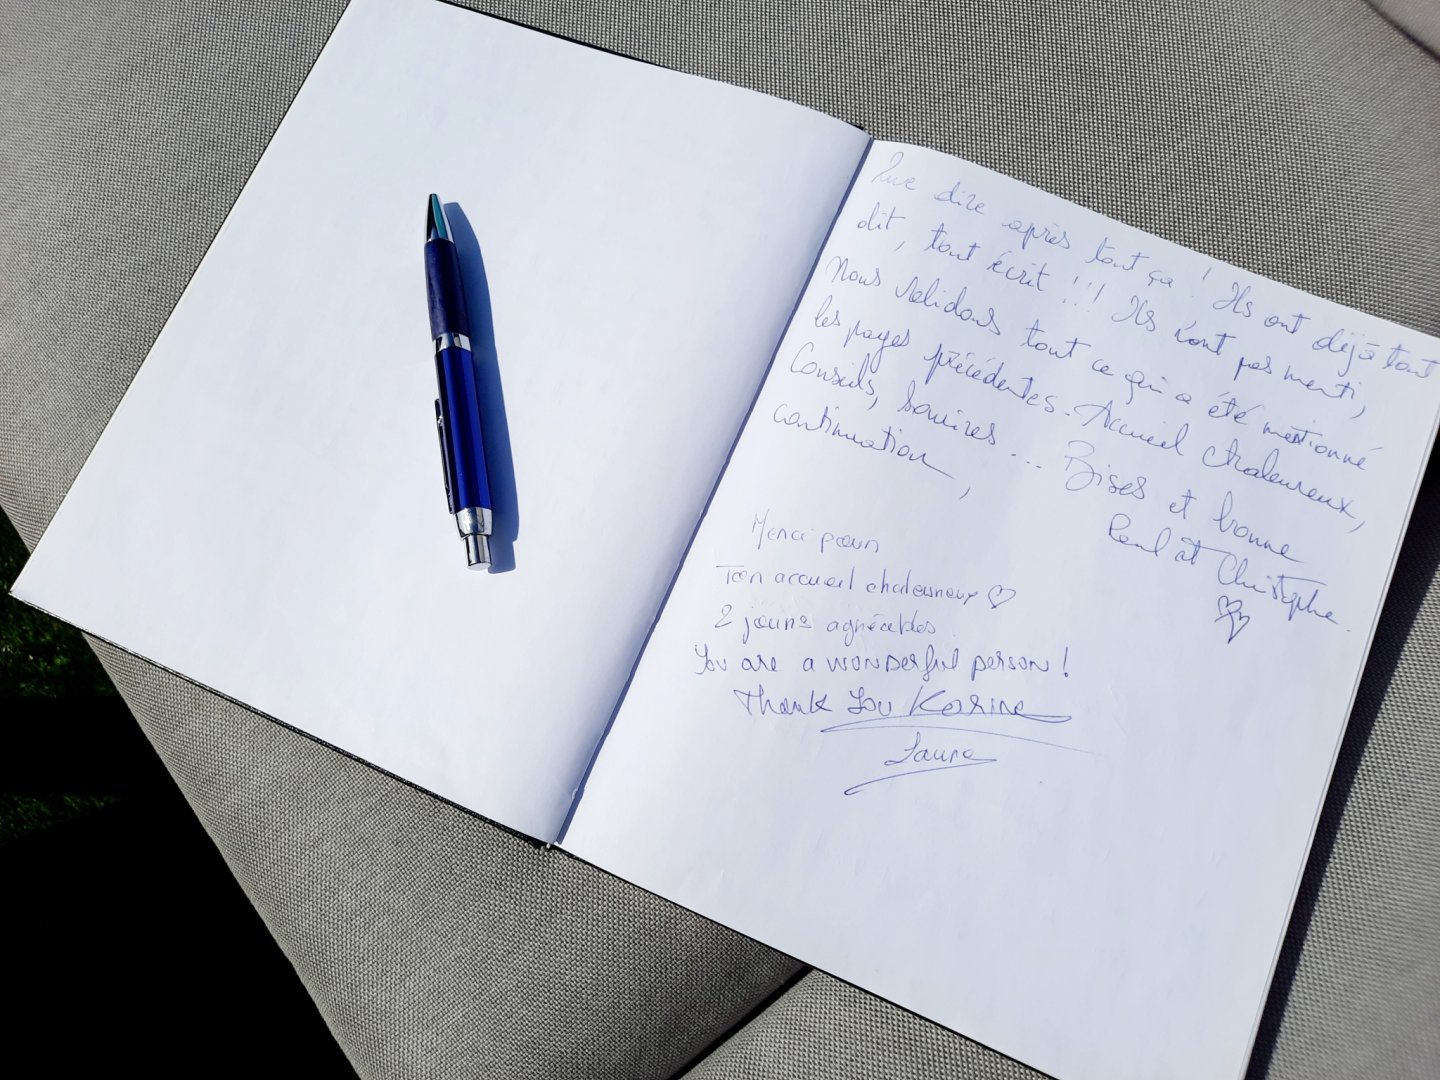 Que dire après tout ça ! Ils ont déjà tout
dit, tout écrit !!! Ils n'ont pas menti,
nous validons tout ce qui a été mentionné
les pages précédentes. Accueil chaleureux,
Conseils, Sourires ... Bises et bonne
continuation,
Paul et Christophe.
Merci pour
Ton accueil chaleureux ♡
2 jours agréables
You are a wonderful person !
Thank You Karine
Laura